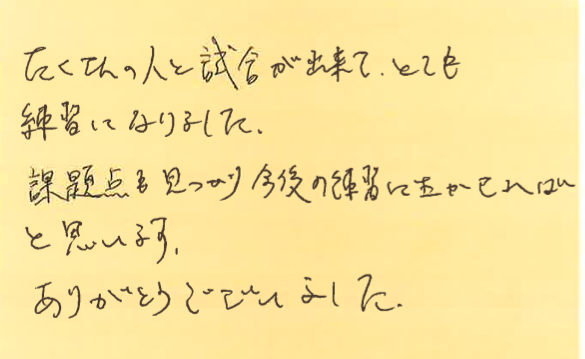 たくさんの人と試合が出来て、とても
練習になりました。
課題点も見つかり今後の練習に生かせればい
と思います。
ありがとうございました。